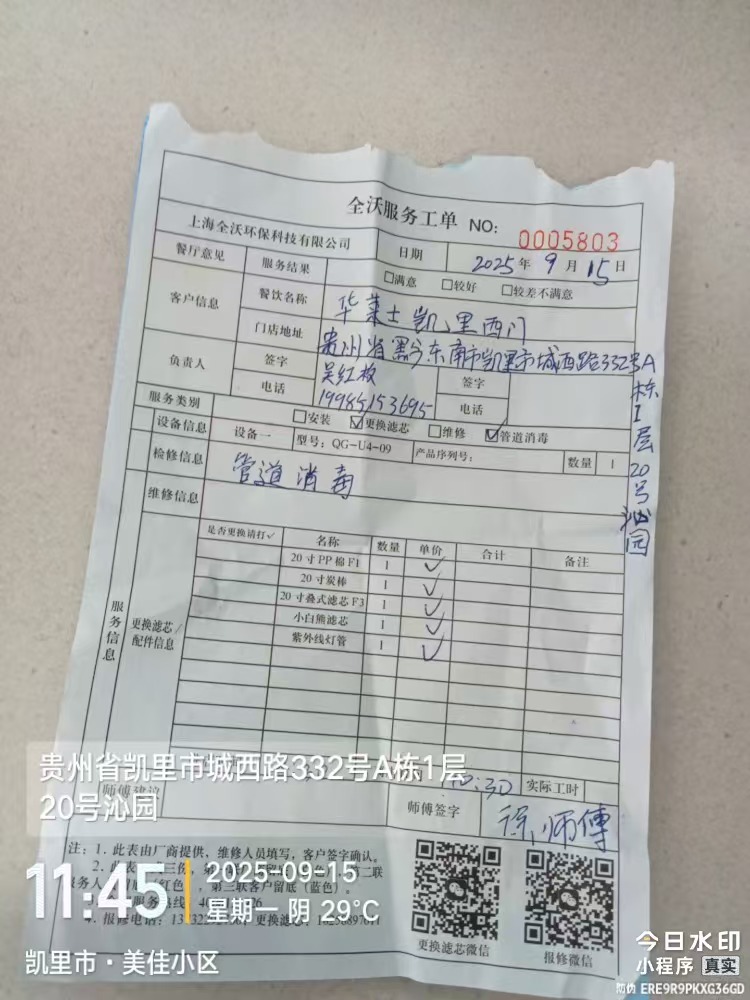 全沃服务工单 NO: 0005803
上海全沃环保科技有限公司 日期 2025年9月15日
餐厅意见 服务结果 □满意 □较好 □较差不满意
客户信息 餐饮名称 华莱士凯里西门
门店地址 贵州省黔东南市凯里市城西路332号A栋1层20号沁园
负责人 签字 吴红 签字
电话 19985153695 电话
服务类别 □安装 ☑更换滤芯 □维修 ☑管道消毒
设备信息 设备一 型号：QG-U4-09 产品序列号： 数量 1
检修信息 管道消毒
维修信息
服务信息 更换滤芯/配件信息
是否更换请打✓ 名称 数量 单价 合计 备注
20寸PP棉F1 1 ✓
20寸炭棒 1 ✓
20寸叠式滤芯F3 1 ✓
小白熊滤芯 1 ✓
紫外线灯管 1 ✓
10:30 实际工时
师傅建议 师傅签字 徐师傅
贵州省凯里市城西路332号A栋1层
20号沁园
注：1. 此表由厂商提供，维修人员填写，客户签字确认。
2. 此表 三份，第 第二联
服务人 红色），第三联客户留底（蓝色）。
服务热线
4. 报修电话： 更换滤芯
11:45 2025-09-15
星期一 阴 29°C
凯里市·美佳小区
更换滤芯微信 报修微信
今日水印
小程序 真实
防伪 ERE9R9PKXG36GD